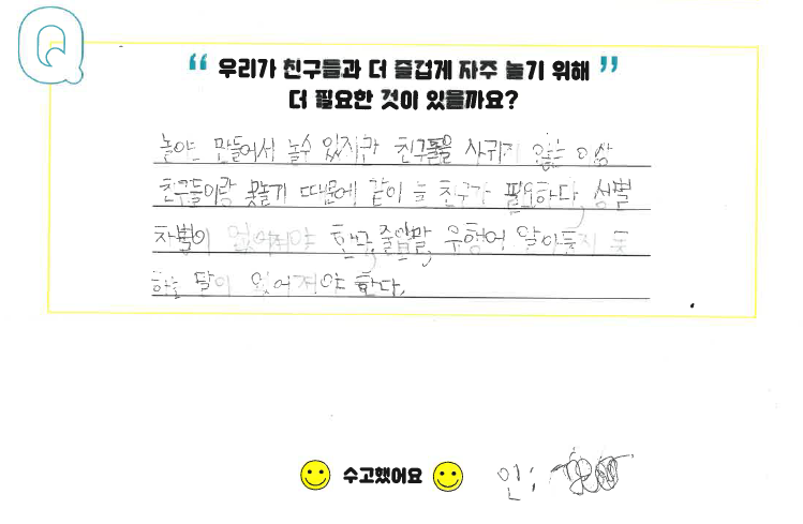 Q
“ 우리가 친구들과 더 즐겁게 자주 놀기 위해 ”
더 필요한 것이 있을까요?
놀이는 만들어서 놀수 있지만 친구들을 사귀지 않는 이상
친구들이랑 못놀기 때문에 같이 놀 친구가 필요하다, 성별
차별이 없어져야 한다, 줄임말, 유행어 알아듣지 못
하는 말이 없어져야 한다,
수고했어요
인;